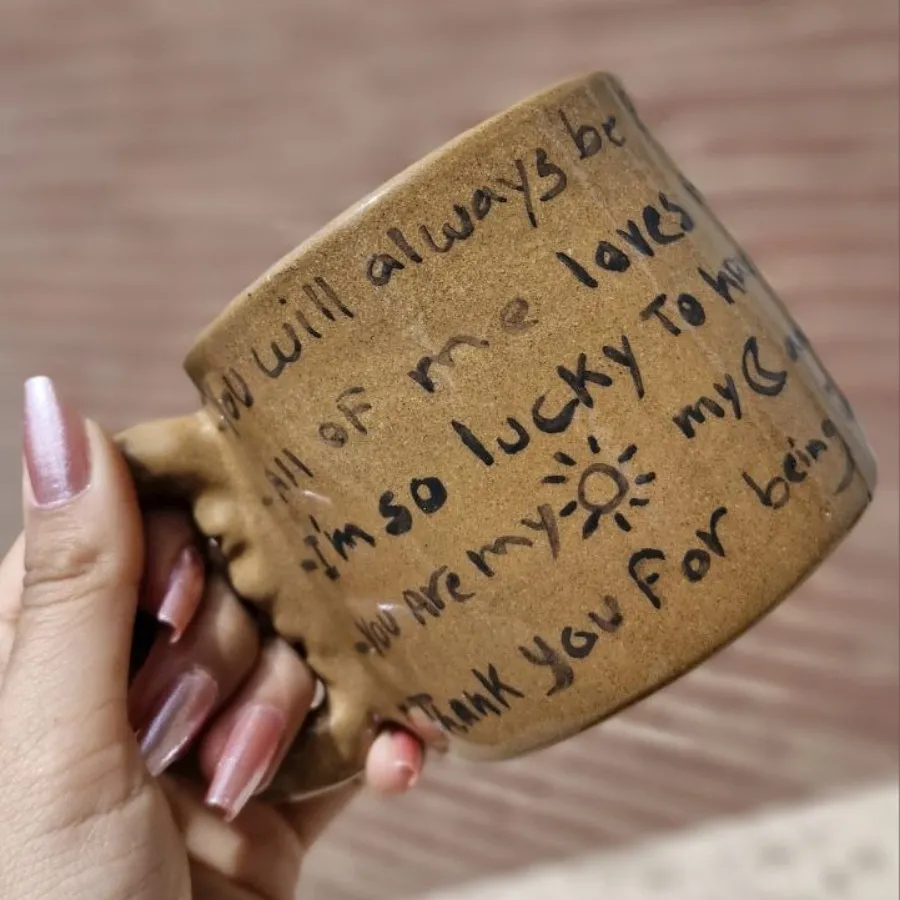 You will always be
.All of me loves
.I'm so lucky To
.You Are my my
Thank you For being